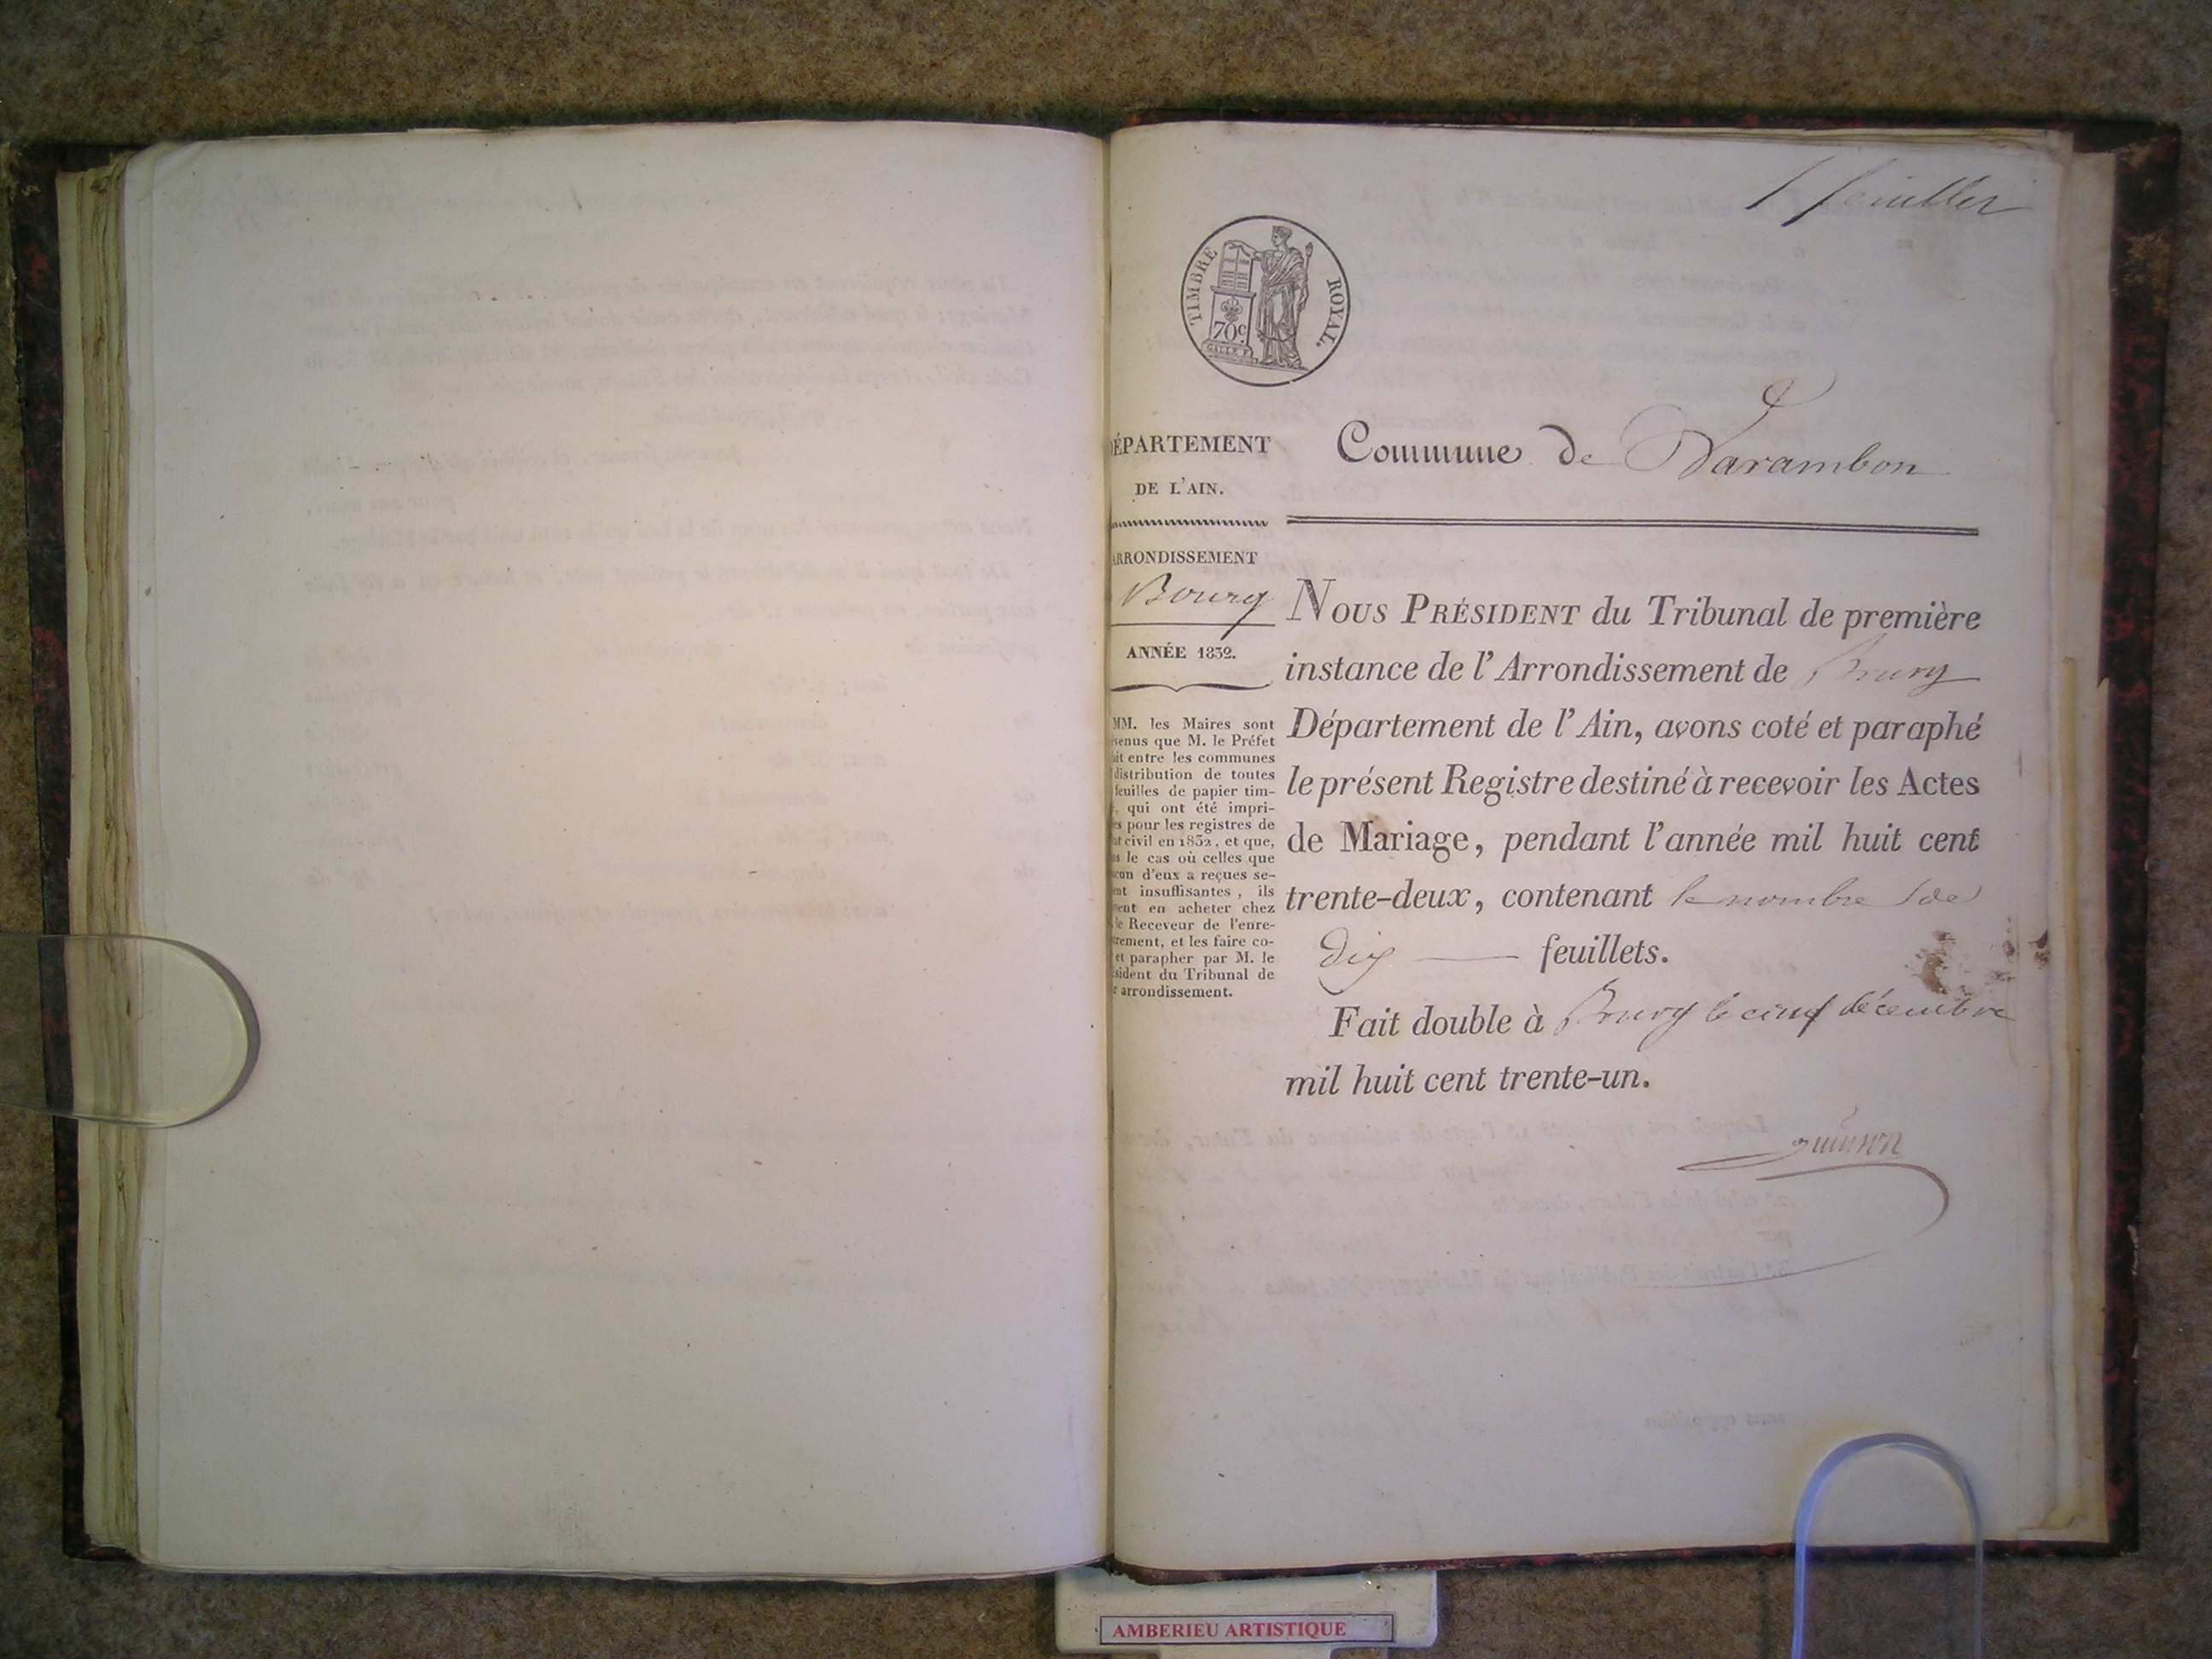 1 feuillet
TIMBRE ROYAL.
70c
GALLE F.
DÉPARTEMENT
DE L'AIN.
Commune de Varambon
ARRONDISSEMENT
Bourg
ANNÉE 1832.
MM. les Maires sont
venus que M. le Préfet
it entre les communes
distribution de toutes
feuilles de papier tim-
, qui ont été impri-
s pour les registres de
t civil en 1832, et que,
s le cas où celles que
cun d'eux a reçues se-
nt insuffisantes, ils
ent en acheter chez
le Receveur de l'enre-
trement, et les faire co-
et parapher par M. le
sident du Tribunal de
r arrondissement.
NOUS PRÉSIDENT du Tribunal de première
instance de l'Arrondissement de Bourg
Département de l'Ain, avons coté et paraphé
le présent Registre destiné à recevoir les Actes
de Mariage, pendant l'année mil huit cent
trente-deux, contenant le nombre de
dix feuillets.
Fait double à Bourg le cinq décembre
mil huit cent trente-un.
AMBERIEU ARTISTIQUE